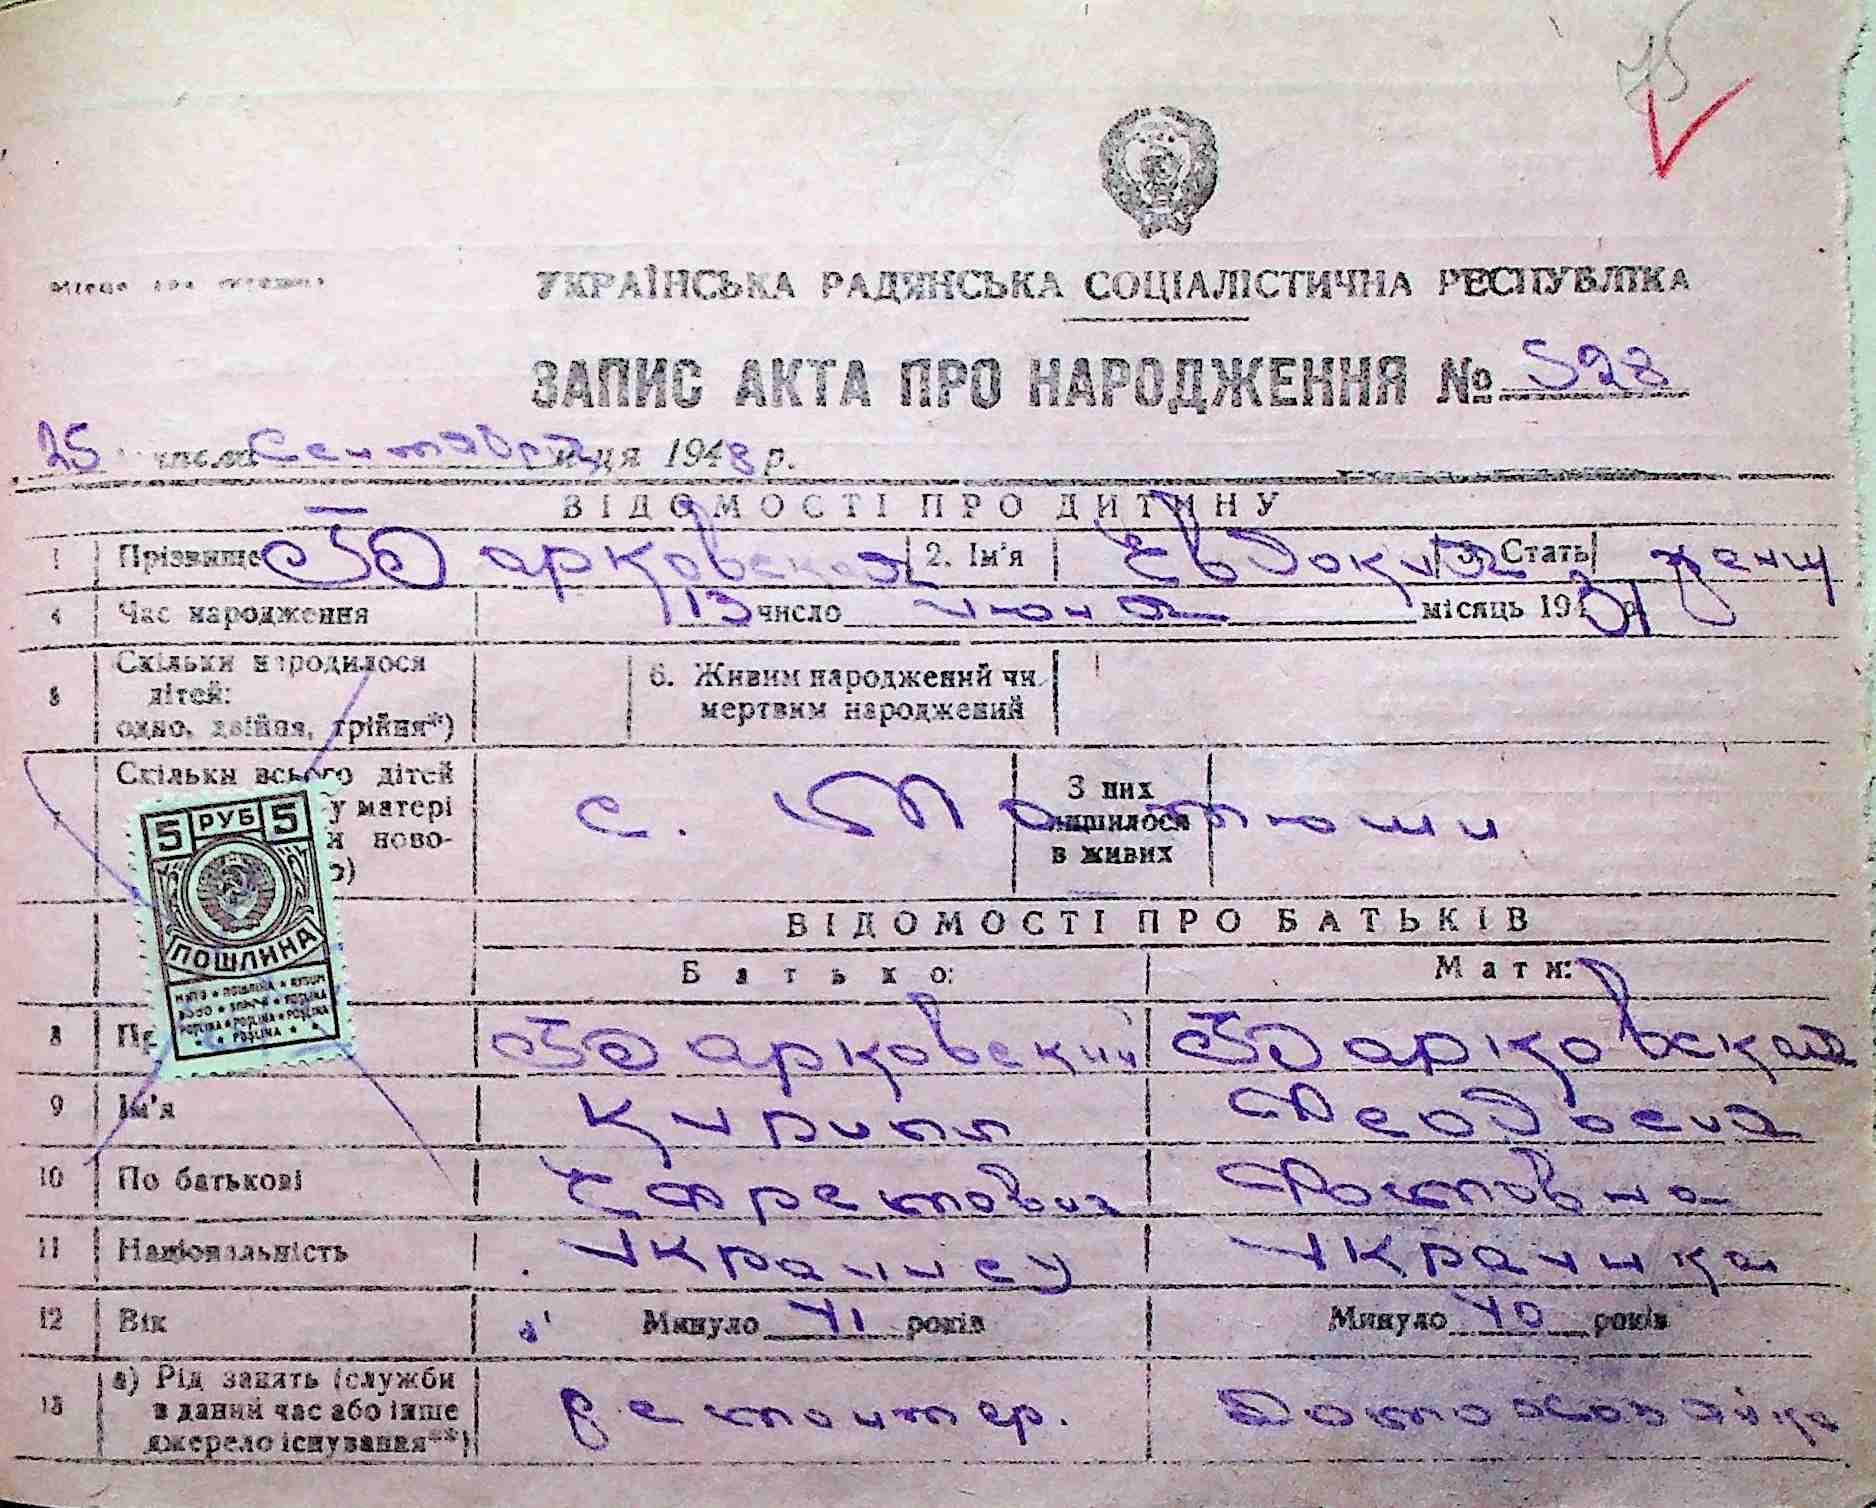 УКРАЇНСЬКА РАДЯНСЬКА СОЦІАЛІСТИЧНА РЕСПУБЛІКА
ЗАПИС АКТА ПРО НАРОДЖЕННЯ № 528
25 числа Сентября місяця 1948 р.
ВІДОМОСТІ ПРО ДИТИНУ
1 Прізвище Барковская 2. Ім'я Евдокия 3. Стать женщ
4 Час народження 13 число июня місяць 1931 р.
5 Скільки народилося дітей: одно, двійня, трійня*) 6. Живим народжений чи мертвим народжений
Скільки всього дітей у матері ново- с. Матюши З них лишилося в живих
5 РУБ 5
ПОШЛИНА
ВІДОМОСТІ ПРО БАТЬКІВ
Батько: Мати:
8 Барковский Барковская
9 Ім'я Кирилл Феодосия
10 По батькові Фоктовна
11 Національність Украинец Украинка
12 Вік Минуло 41 років Минуло 40 років
13 а) Рід занять (служби в даний час або інше джерело існування**) Домохозяйка